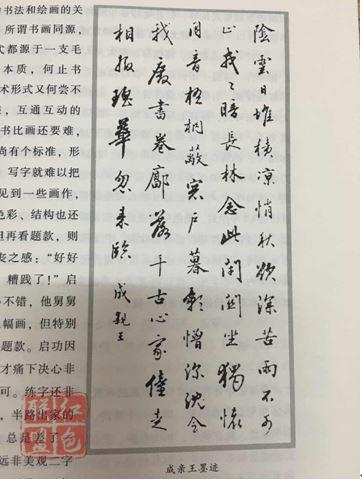 书法和绘画的关
所谓书画同源，
式都源于一支毛
本质，何止书
术形式又何尝不
，互通互动的
书比画还要难，
尚有个标准，形
写字就难以把
见到一些画作，
色彩、结构也还
但再看题款，则
丧之感：“好好
糟践了！”启
不错，他舅舅
幅画，但特别
题款。启功因
才痛下决心非
可。练字还非
半路出家的
总是差了
远非美观二字
陰雲日堆積涼悄秋欲深苦雨不可
止暗長林念此閉關坐獨懷
同音梧桐蔽寒戶暮憎弥沈令
我廢書卷廓落千古心家僮走
相报瑰華忽来臨 成親王
成亲王墨迹
红色